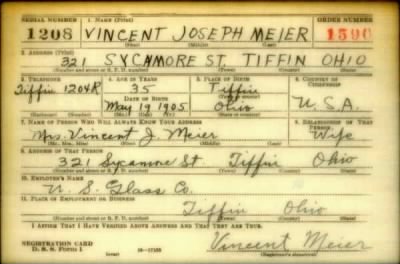 SERIAL NUMBER 1. NAME (Print) ORDER NUMBER
1208 VINCENT JOSEPH MEIER 1590
(First) (Middle) (Last)
2. ADDRESS (Print)
321 SYCAMORE ST. TIFFIN OHIO
(Number and street or R. F. D. number) (Town) (County) (State)
3. TELEPHONE 4. AGE IN YEARS 5. PLACE OF BIRTH 6. COUNTRY OF CITIZENSHIP
Tiffin 1204R 35 Tiffin
DATE OF BIRTH
May 19 1905 Ohio U.S.A.
(Exchange) (Number) (Mo.) (Day) (Yr.) (Town or county) (State or country)
7. NAME OF PERSON WHO WILL ALWAYS KNOW YOUR ADDRESS 8. RELATIONSHIP OF THAT PERSON
Mrs. Vincent J. Meier Wife
(Mr., Mrs., Miss) (First) (Middle) (Last)
9. ADDRESS OF THAT PERSON
321 Sycamore St Tiffin Ohio
(Number and street or R. F. D. number) (Town) (County) (State)
10. EMPLOYER'S NAME
U. S. Glass Co.
11. PLACE OF EMPLOYMENT OR BUSINESS
Tiffin Ohio
(Number and street or R. F. D. number) (Town) (County) (State)
I AFFIRM THAT I HAVE VERIFIED ABOVE ANSWERS AND THAT THEY ARE TRUE.
REGISTRATION CARD
D. S. S. Form 1 (over) Vincent Meier
(Registrant's signature)